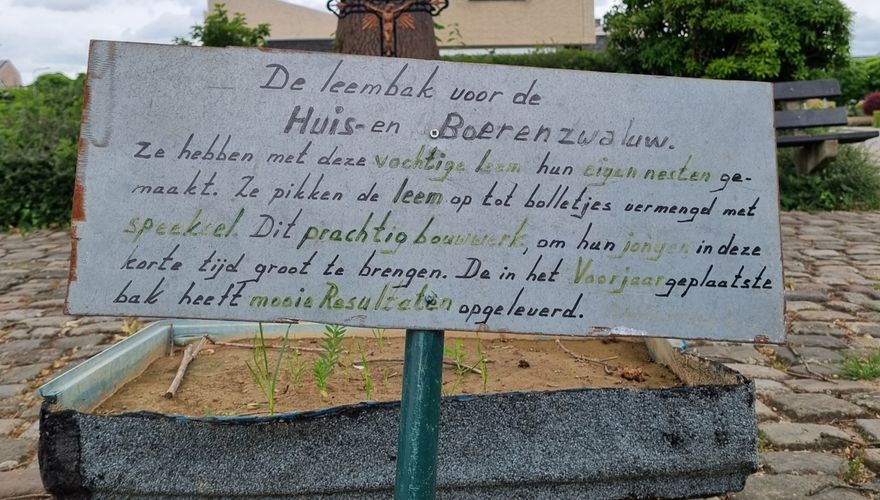 De leembak voor de
Huis-en Boerenzwaluw.
Ze hebben met deze vochtige leem hun eigen nesten ge-
maakt. Ze pikken de leem op tot bolletjes vermengd met
speeksel. Dit prachtig bouwwerk, om hun jongen in deze
korte tijd groot te brengen. De in het Voorjaar geplaatste
bak heeft mooie Resultaten opgeleverd.